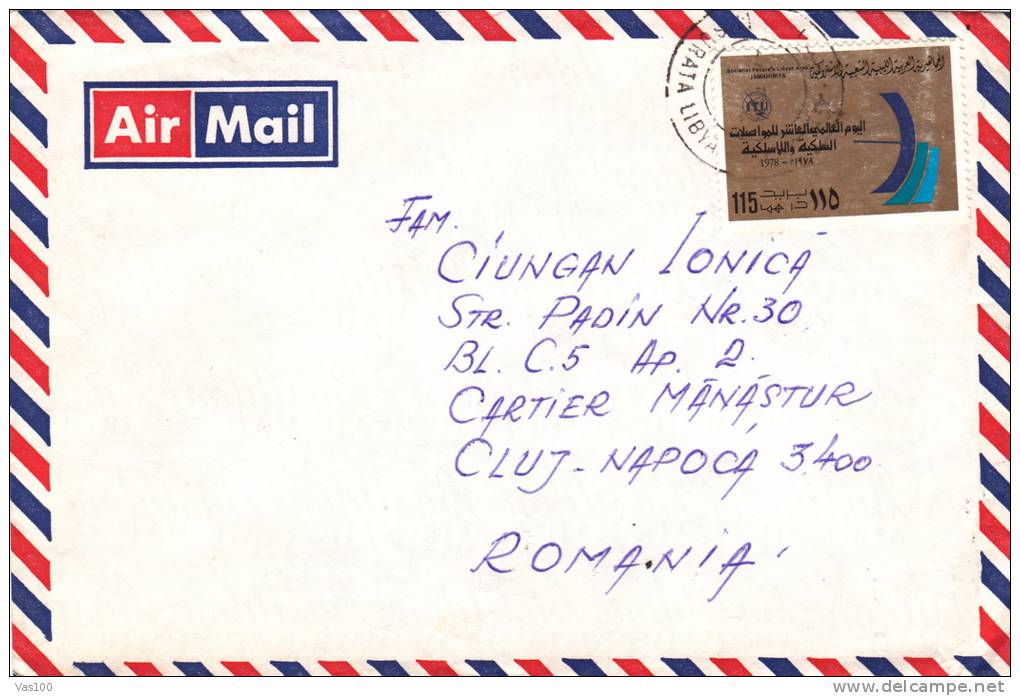 Air Mail
SURATA LIBYA
Socialist People's Libyan Arab
JAMAHIRIYA
الجماهيرية العربية الليبية الشعبية الاشتراكية
ITU
اليوم العالمي العاشر للمواصلات
السلكية واللاسلكية
1978 - م١٩٧٨
115 بريد درهما ١١٥
FAM.
CIUNGAN IONICĂ
STR. PADIN NR. 30
BL. C.5 AP. 2.
CARTIER MĂNĂȘTUR
CLUJ-NAPOCA 3400
ROMANIA
Vas100
delcampe.net